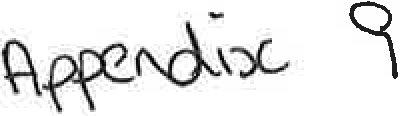 Appendix 9